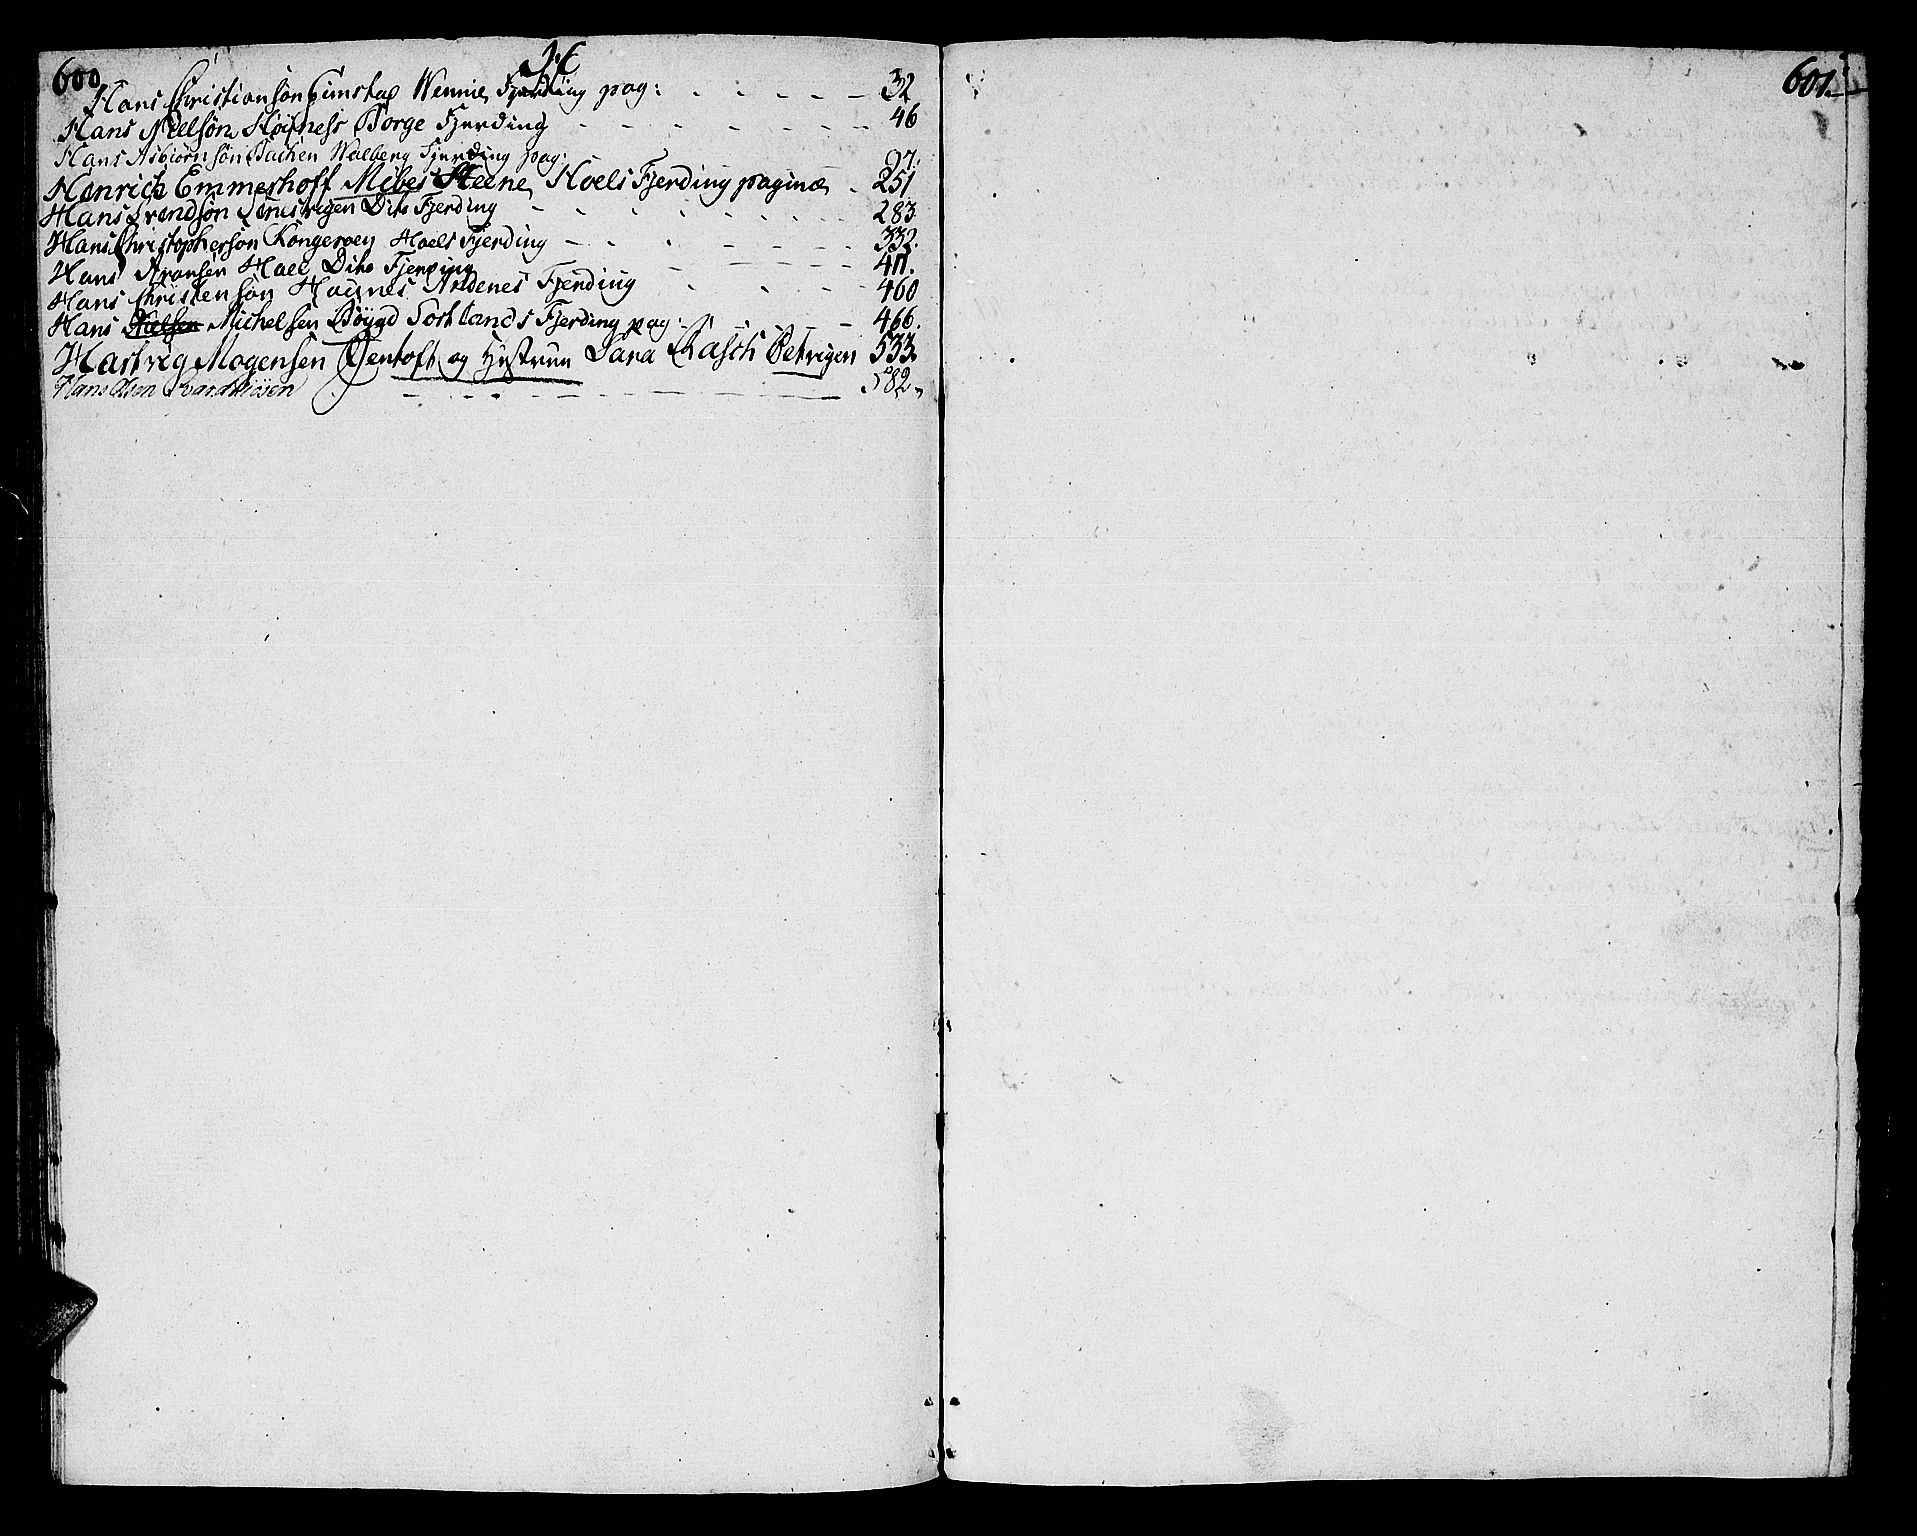 600
H
Hans Christiansøn Gimstad Wennie Fjerding pag: 32
Hans Nielsøn Høgness Borge Fjerding 46
Hans Asbiørnsøn Backen Walberg Fjerding pag: 97.
Henrich Emmerhoff Melbes Steene Hoels Fjerding paginæ 251
Hans Trondsøn Dito Fjerding 283
Hans Christophersøn Kongeroen Hoels Fjerding 332.
Hans Aronsen Hael Dito Fjerding 411.
Hans Christensøn Haugnes Andenes Fjerding 460
Hans Nielsen Michelsen Bøygd Sortlands Fjerding pag: 466.
Hartvig Mogensen Jentoft og Hustrue Sara Rasch Betvigen 533.
Hans Olsen 582
601.